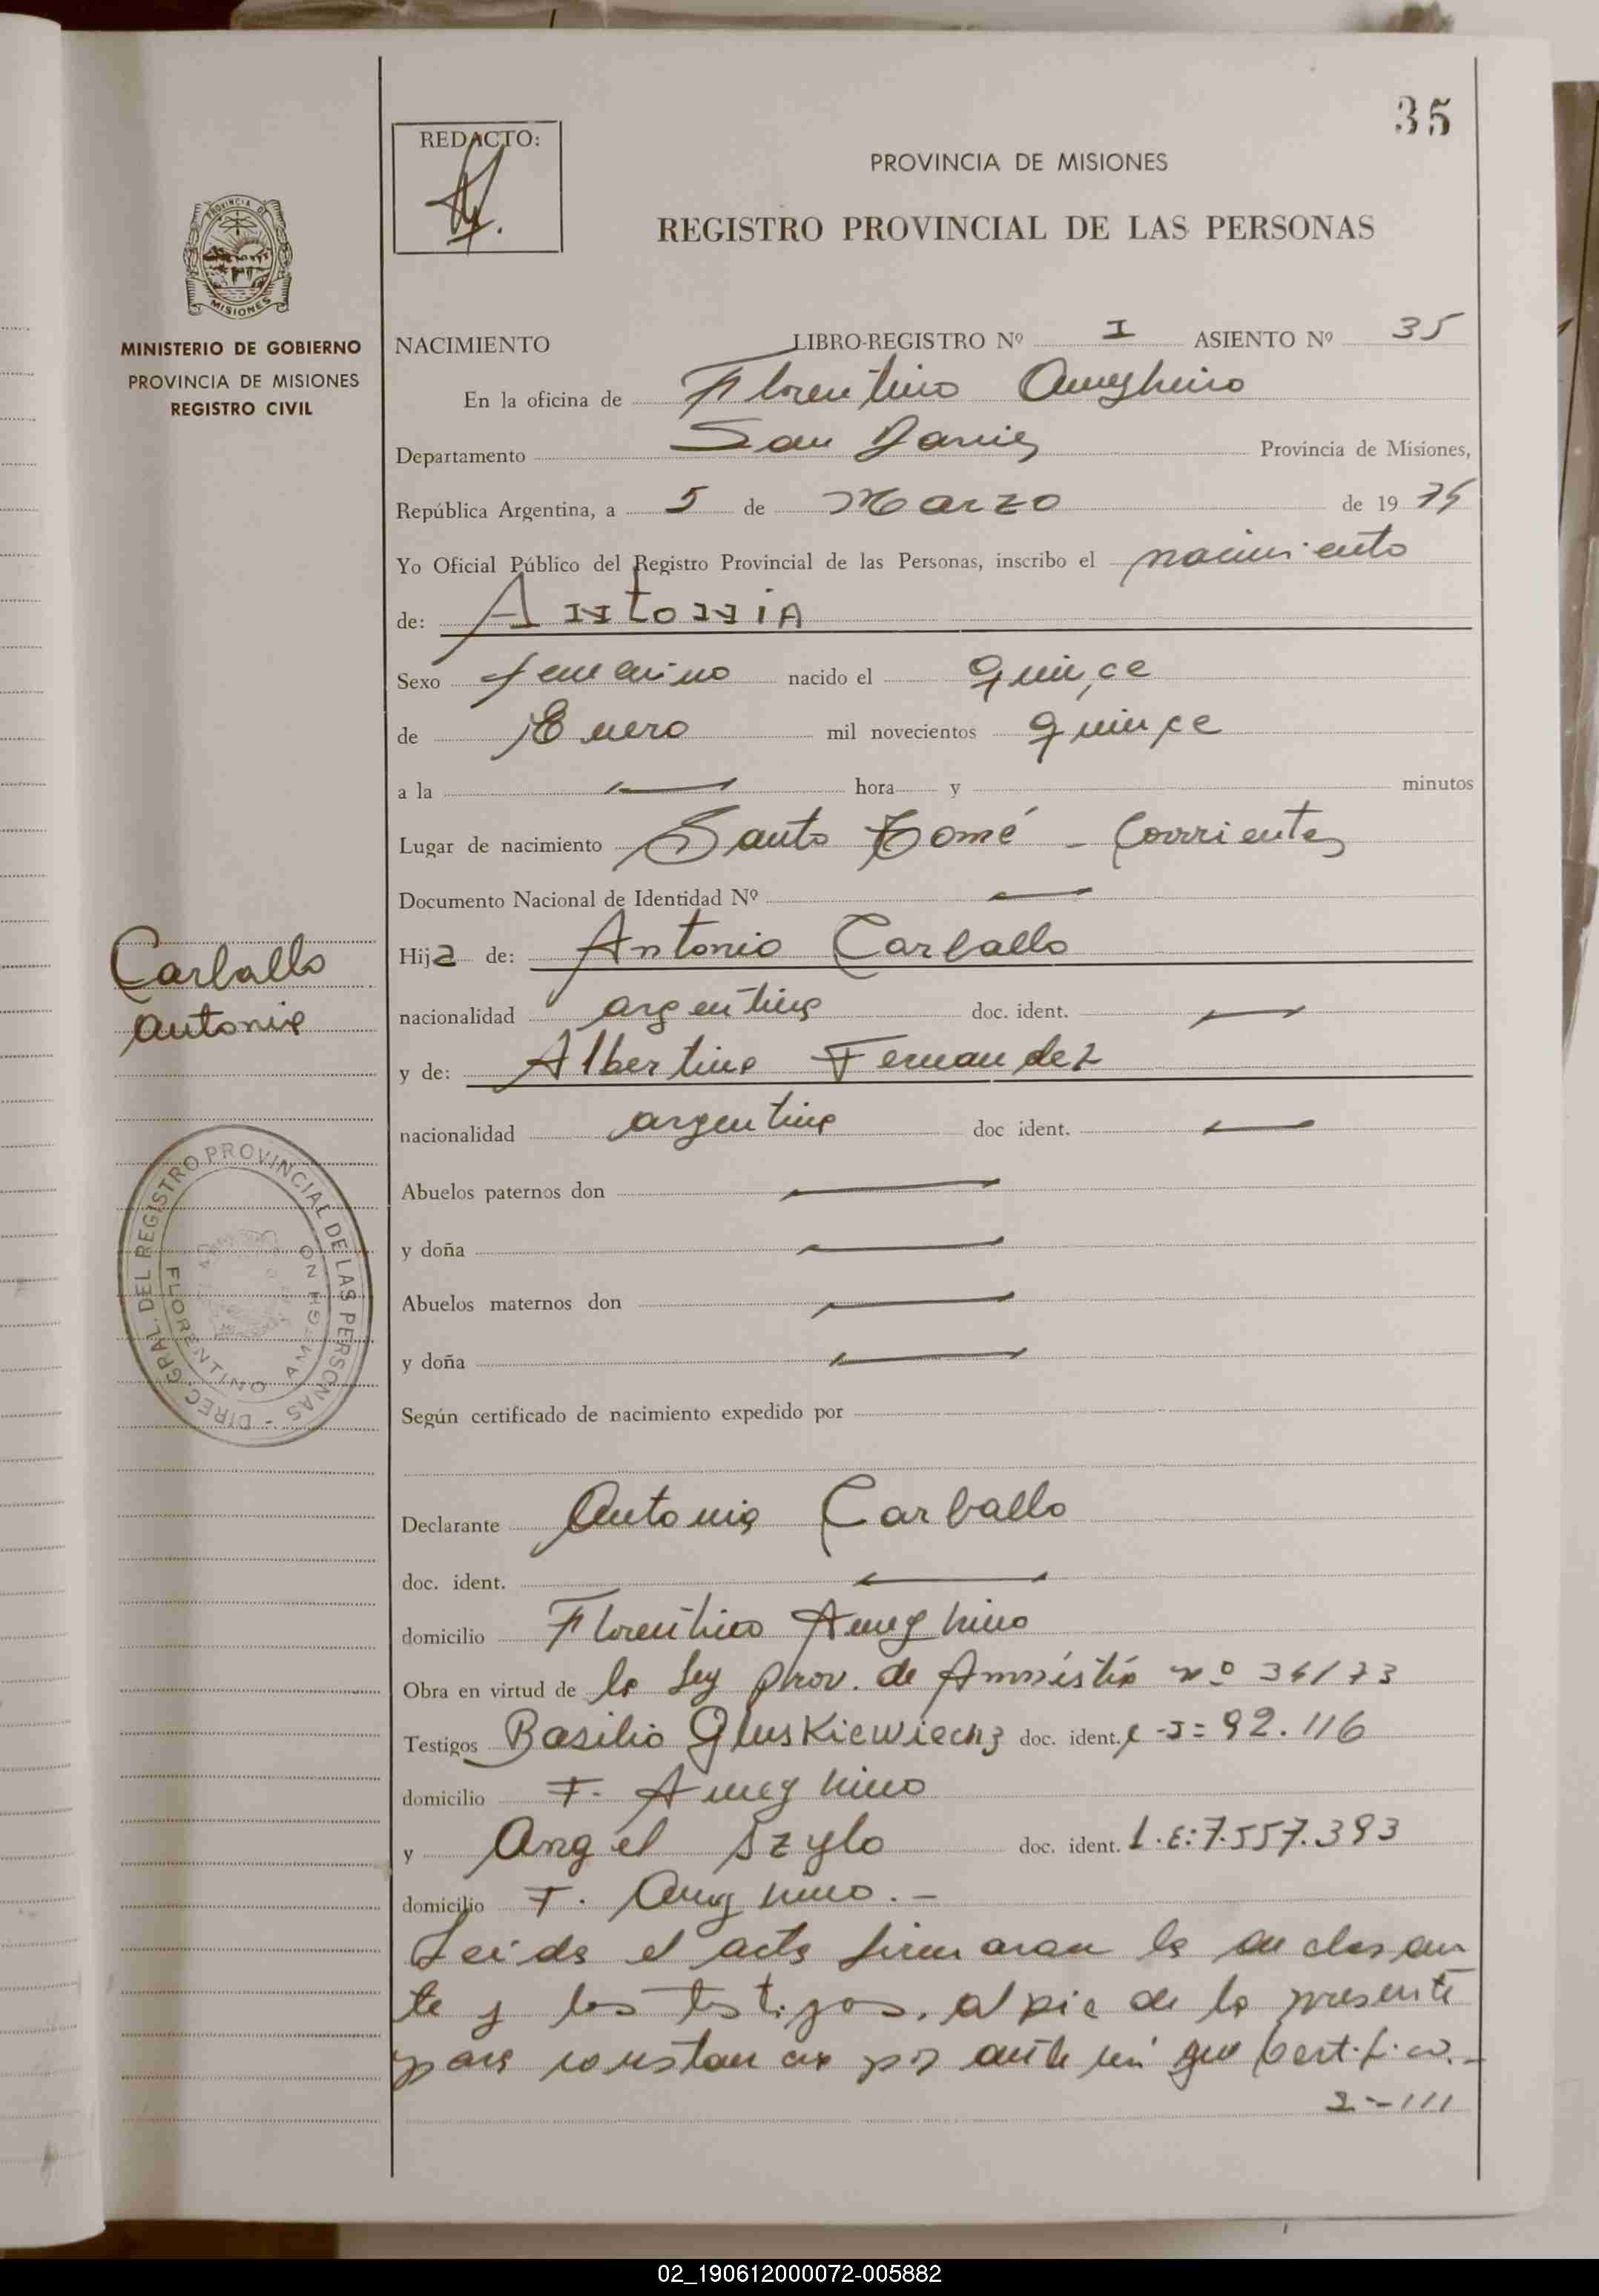 35
REDACTO:
PROVINCIA DE MISIONES
REGISTRO PROVINCIAL DE LAS PERSONAS
PROVINCIA DE MISIONES
MINISTERIO DE GOBIERNO
PROVINCIA DE MISIONES
REGISTRO CIVIL
NACIMIENTO LIBRO-REGISTRO Nº I ASIENTO Nº 35
En la oficina de Florentino Ameghino
Departamento San Javier Provincia de Misiones,
República Argentina, a 5 de Marzo de 19
Yo Oficial Público del Registro Provincial de las Personas, inscribo el nacimiento
de: Antonia
Sexo femenino nacido el quince
de Enero mil novecientos quince
a la — hora y minutos
Lugar de nacimiento Santo Tomé - Corrientes
Documento Nacional de Identidad Nº —
Hija de: Antonio Carballo
nacionalidad argentina doc. ident. —
y de: Albertina Fernandez
nacionalidad argentina doc ident. —
Abuelos paternos don —
y doña —
Abuelos maternos don —
y doña —
Según certificado de nacimiento expedido por
Declarante Antonia Carballo
doc. ident. —
domicilio Florentino Ameghino
Obra en virtud de la Ley prov. de Amnistía nº 34/73
Testigos Basilio Gluskiewiecnz doc. ident. 92.116
domicilio F. Ameghino
y Angel Szylo doc. ident. L.E:7.557.393
domicilio F. Ameghino.-
Leida el acta firmaran la declaran
te y los testigos, al pie de la presente
para constancia por ante mí que Certifico.-
2-111
Carballo
Antonia
DIREC. GRAL. DEL REGISTRO PROVINCIAL DE LAS PERSONAS -
FLORENTINO AMEGHINO
02_190612000072-005882